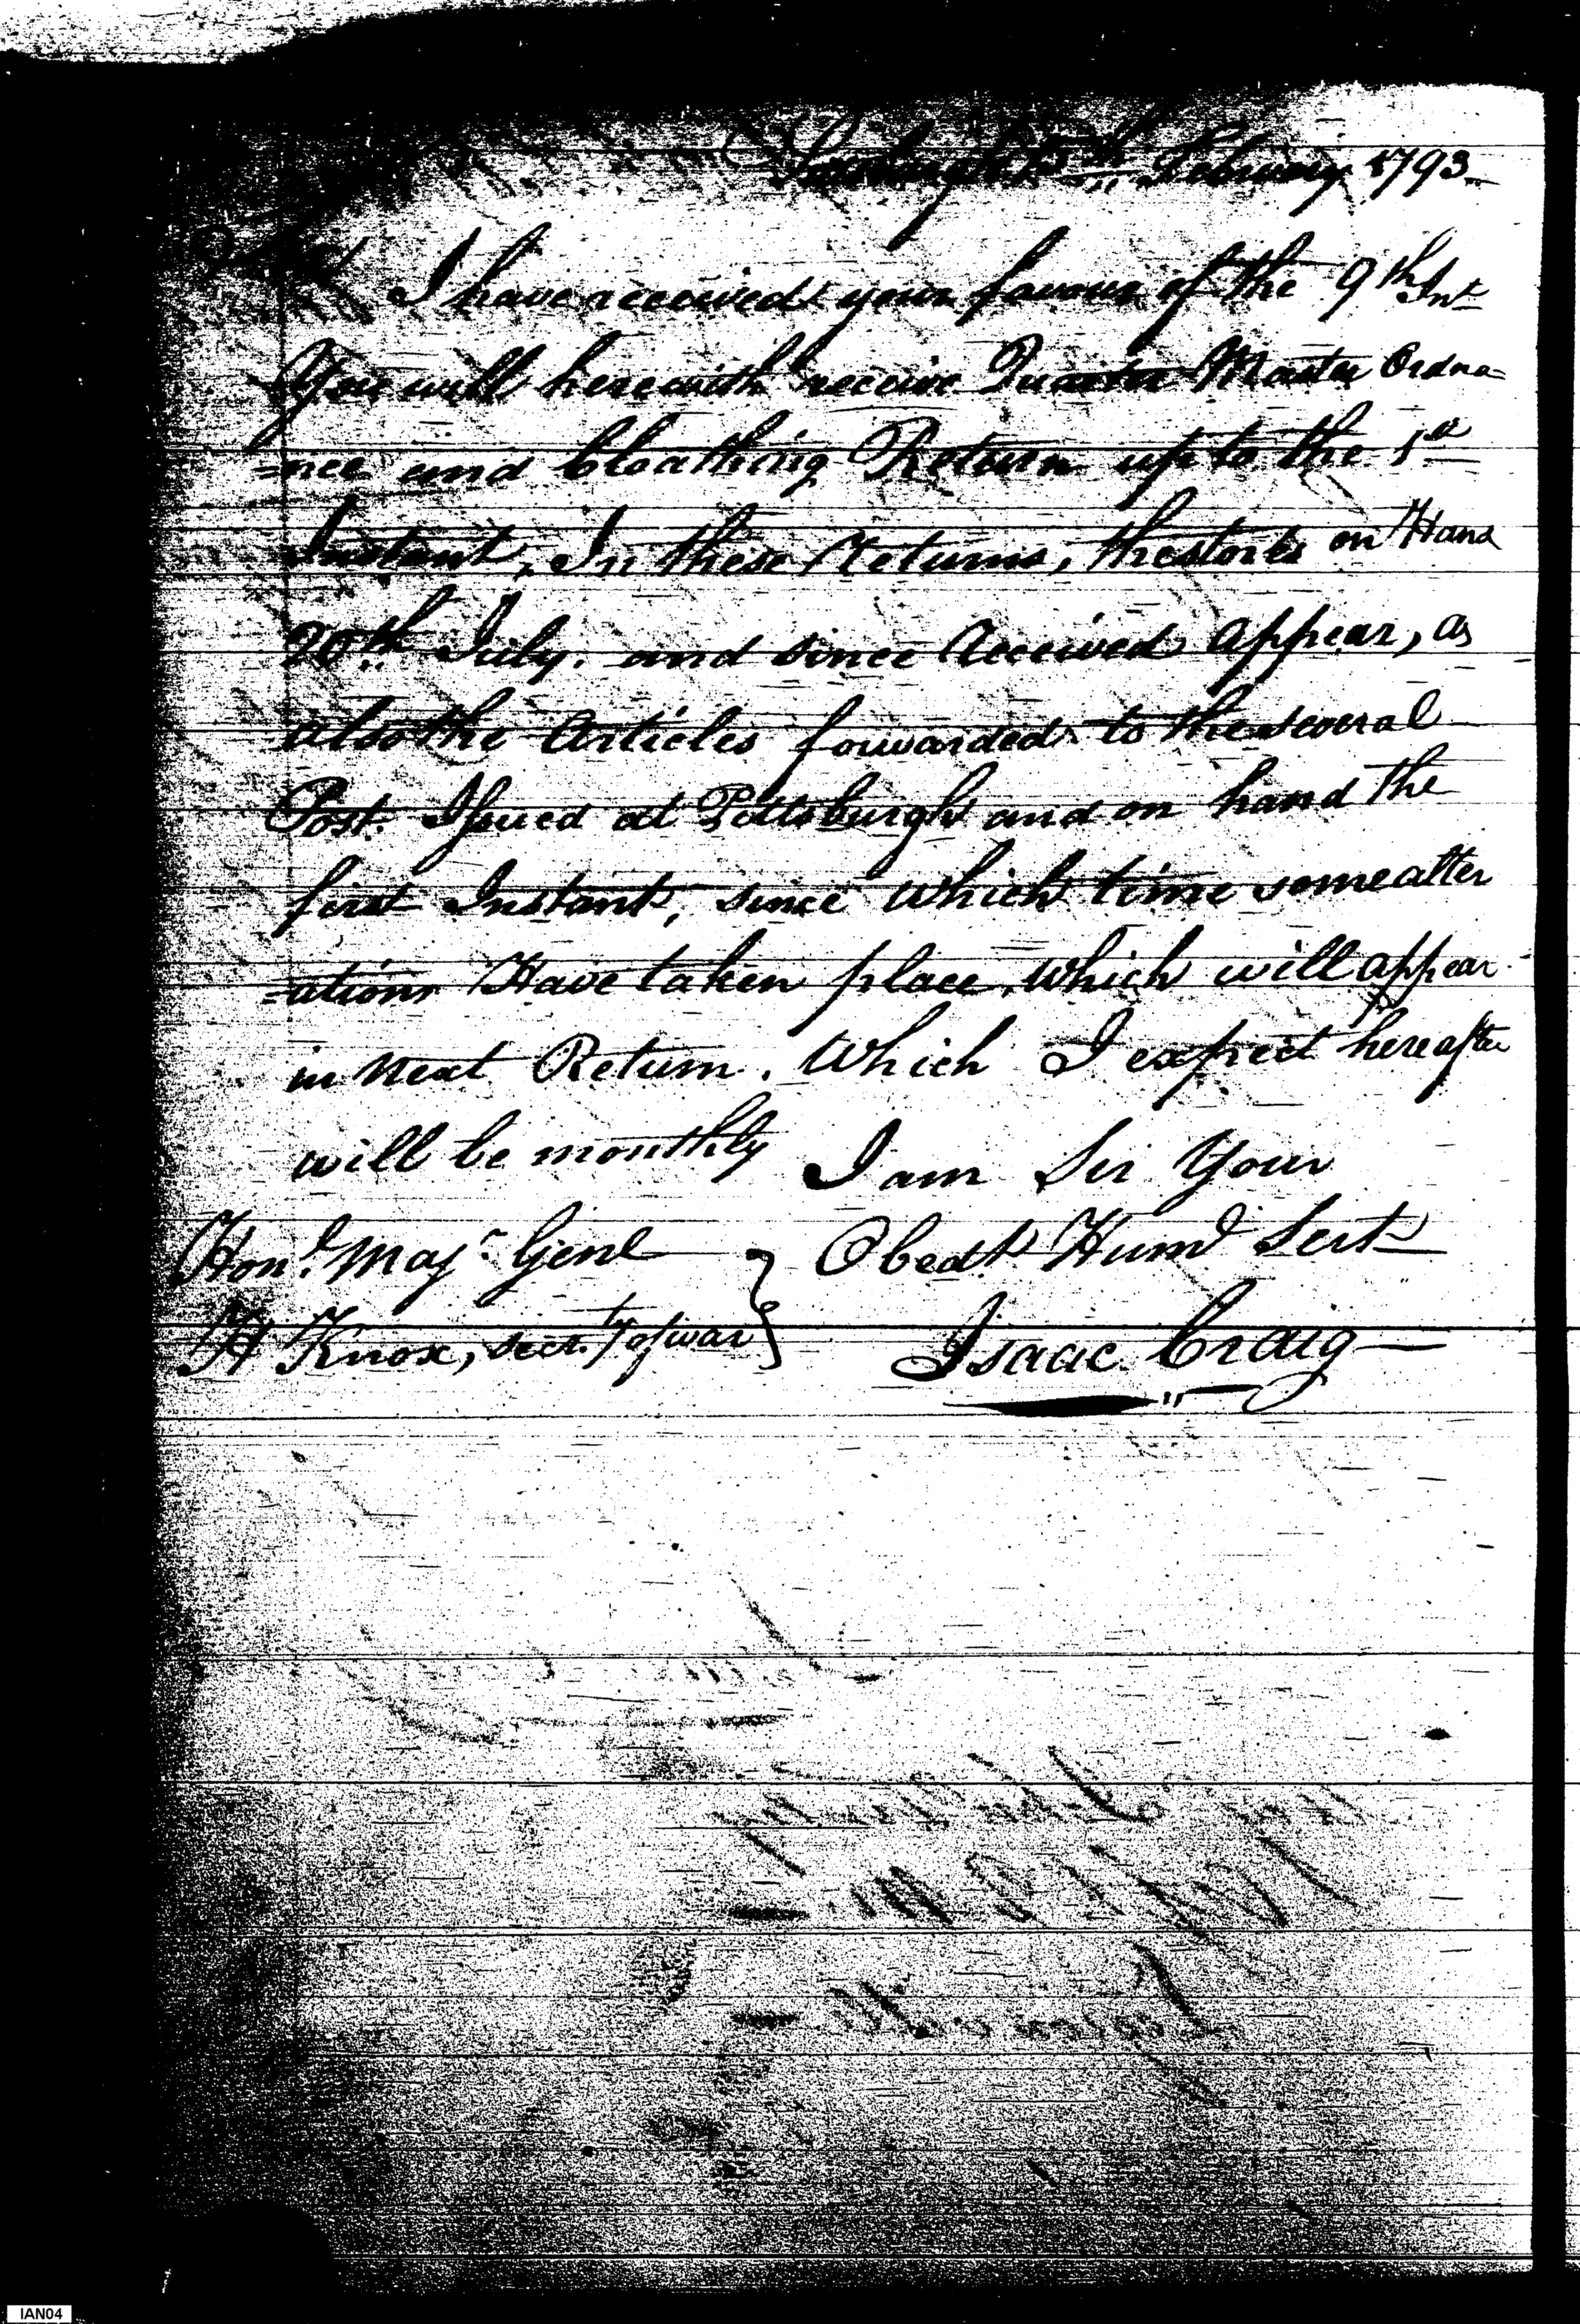 February 1793
I have received your favour of the 9th Inst
You will herewith receive Quarter Master Ordna=
=nce and Cloathing Return up to the 1st
Instant, In these Returns, the stores on Hand
20th July. and since Received appear, as
also the Articles forwarded to the several
Post. Issued at Pittsburgh and on hand the
first Instant, since which time some alter
=ations Have taken place, which will appear
in next Return. Which I expect hereafter
will be monthly I am Sir Your
Hond. Majr. Genl Obedt Humb Sert
H Knox, secrty of war Isaac Craig
IAN04